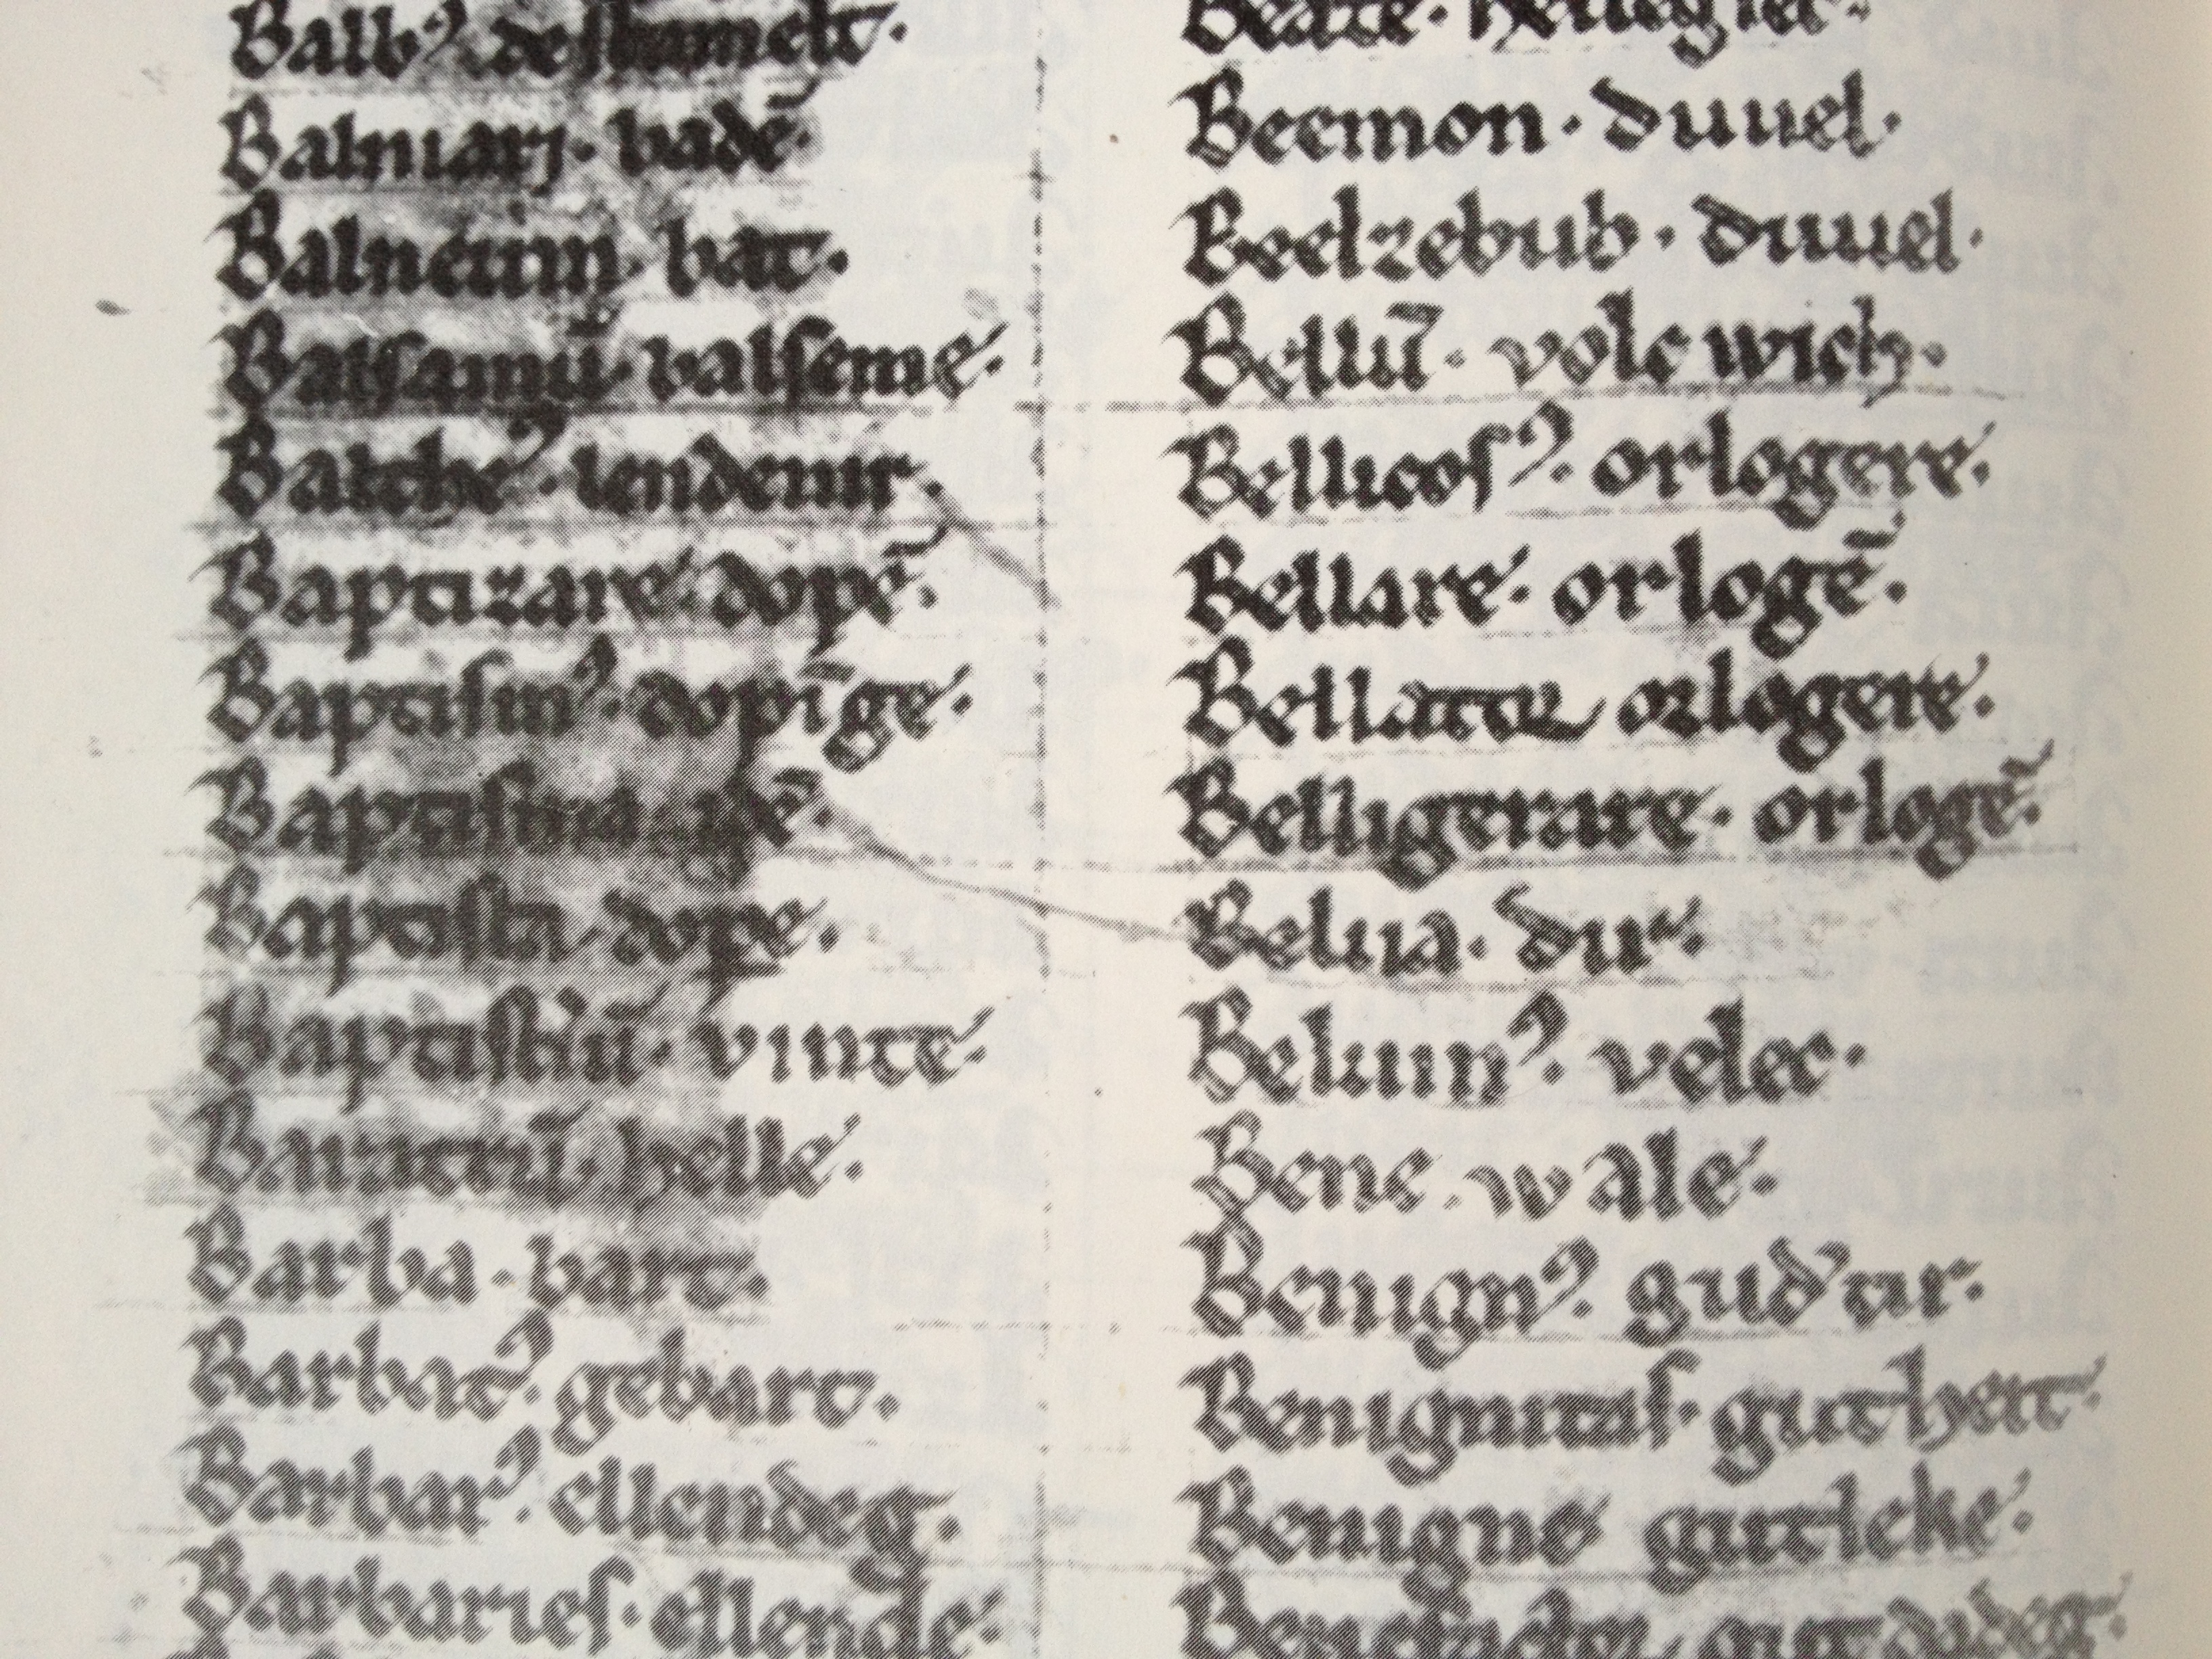 Balbꝰ
Balniarj · badē·
Balneum · bat·
Balsamū · balseme·
Balthe⁹ · lendenir·
Baptizare · dopē·
Baptismꝰ · dopīge·
Baptisma
Baptista dope·
Baptistiū · vinte·
Baratrū · helle·
Barba · bart·
Barbatꝰ · gebart·
Barbarꝰ · ellendeg·
Barbaries · ellende·
Beate ·
Beemon · duuel·
Beelzebub · duuel·
Bellū · volc wich·
Bellicosꝰ · orlogere·
Bellare · orlogē·
Bellator orlogere·
Belligerare · orlogē·
Belua · dir·
Beluinꝰ · velec·
Bene · wale·
Benignꝰ · gud'tir·
Benignitas · gutheit·
Benigne gutleke·